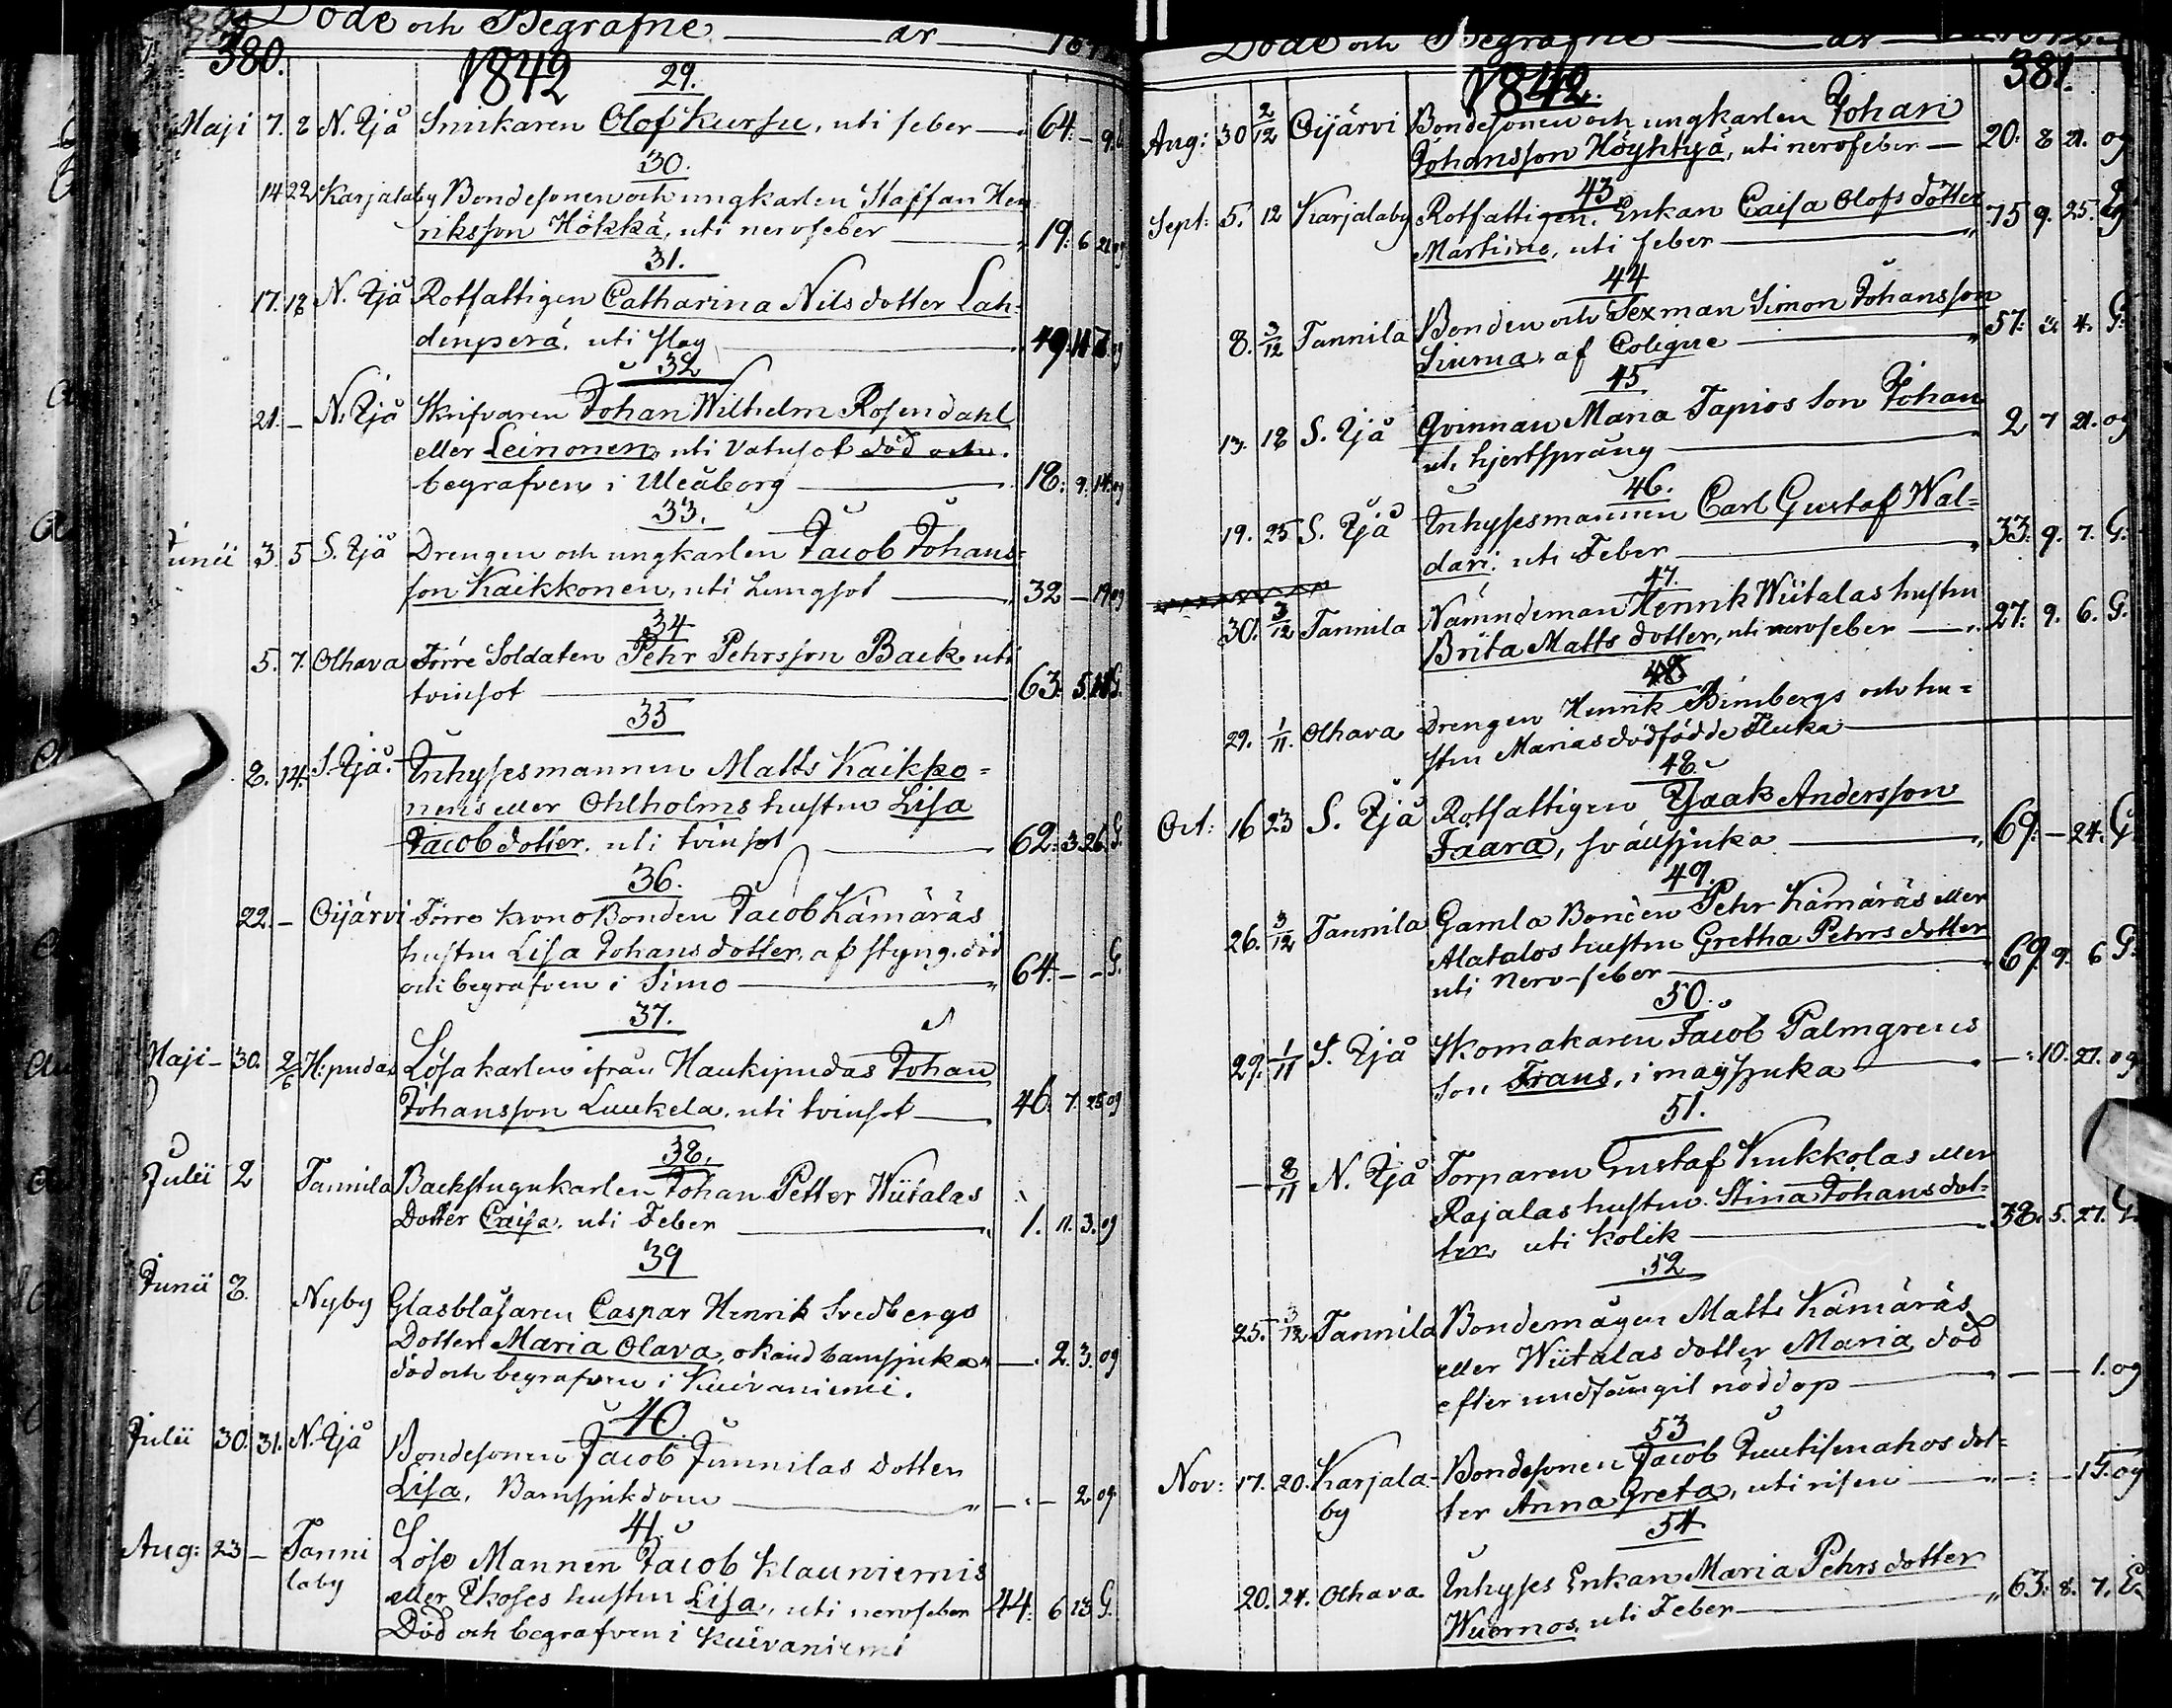 Döde och Begrafne år
380.
1842
29.
Maji 7. 8 N. Ijå Smikaren Olof Kursu, uti feber 64. - 9.
30.
14 22 Karjalaby Bondesonen och ungkarlen Staffan Hen
riksson Hökkä, uti nervfeber 19. 6 21 og
31.
17. 18 N. Ijå Rotfattigen Catharina Nilsdotter Lah-
denperä, uti slag 49. 11 og
32
21. - N. Ijå Skrifvaren Johan Wilhelm Rosendahl
eller Leinonen, uti Vatusot död och
begrafven i Uleåborg 18. 9. 14. og
33.
Junii 3. 5 S. Ijå Drengen och ungkarlen Jacob Johans-
son Kaikkonen, uti Lungsot 32 - 19 og
34
5. 7. Olhava Förre Soldaten Pehr Pehrsson Back uti
tvinsot 63. 5. G.
35
8. 14. S. Ijå. Inhysesmannen Matts Kaikko-
nens eller Ohlholms hustru Lisa
Jacobdotter, uti tvinsot 62. 3. 26. G.
36.
22. - Oijärvi Förre krono Bonden Jacob Kämäräs
hustru Lisa Johansdotter, af styng. död
och begrafven i Simo 64. - - G.
37.
Maji - 30. 2/6 H:pudas Lösa karlen ifrån Haukipudas Johan
Johansson Luukela, uti tvinsot 46. 7. 25 og
38.
Julii 2 Tannila Backstugukarlen Johan Petter Wiitalas
Dotter Caisa, uti Feber 1. 11. 3. og
39
Junii 8. Nyby Glasblåsaren Caspar Henrik Svedbergs
Dotter Maria Olava, okänd barnsjuka - 2. 3. og
död och begrafven i Kuivaniemi.
40.
Julii 30. 31. N. Ijå Bondesonen Jacob Junnilas dotter
Lisa, Barnsjukdom - - 2 og
41.
Aug: 23 - Tanni Löse Mannen Jacob Klauniemis
laby eller Ekoses hustru Lisa, uti nervfeber 44. 6 13 G.
Död och begrafven i Kuivaniemi
Döde och Begrafne år
381.
1842.
Aug: 30 2/12 Oijärvi Bondesonen och ungkarlen Johan
Johansson Höyhtyä, uti nervfeber 20. 8 21. og
43
Sept: 5. 12 Karjalaby Rotfattigen Enkan Caisa Olofsdotter
Martimo, uti feber 75 9. 25. Eg
44
8. 3/12 Tannila Bonden och Sexman Simon Johansson
Siurua, af Colique 57. 4. G.
45
13. 18 S. Ijå Qvinnan Maria Tapios son Johan
uti hjertsprång 2 7 21. og
46.
19. 25 S. Ijå Inhysesmannen Carl Gustaf Wal-
dari. uti Feber 33. 9. 7. G.
47.
30. 3/12 Tannila Nämndeman Henrik Wiitalas hustru
Brita Mattsdotter, uti nervfeber 27. 9. 6. G.
48
29. 1/11. Olhava Drengen Henrik Bimbergs och hu-
stru Marias dödfödde Flicka
48.
Oct: 16 23 S. Ijå Rotfattigen Isaak Andersson
Jaara, svårsjuka 69. - 24. G
49.
26. 3/12 Tannila Gamla Bonden Pehr Kämäräs eller
Alatalos hustru Gretha Pehrsdotter
uti Nervfeber 69. 9. 6 G.
50.
29. 1/11 S. Ijå Skomakaren Jacob Palmgrens
son Frans, i magsjuka - 10. 27. og
51.
- 8/11 N. Ijå Torparen Gustaf Kukkolas eller
Rajalas hustru Stina Johansdot-
ter, uti kolik 38. 5. 27. G.
52
25. 3/12 Tannila Bondemågen Matts Kämäräs
eller Wiitalas dotter Maria, död
efter undfångit nöddop - - 1. og
53
Nov: 17. 20. Karjala- Bondesonen Jacob Juutisenahos dot-
by ter Anna Greta, uti risen - - 15. og
54
20. 24. Olhava Inhyses Enkan Maria Pehrsdotter
Wuornos, uti Feber 63. 8. 7. E.